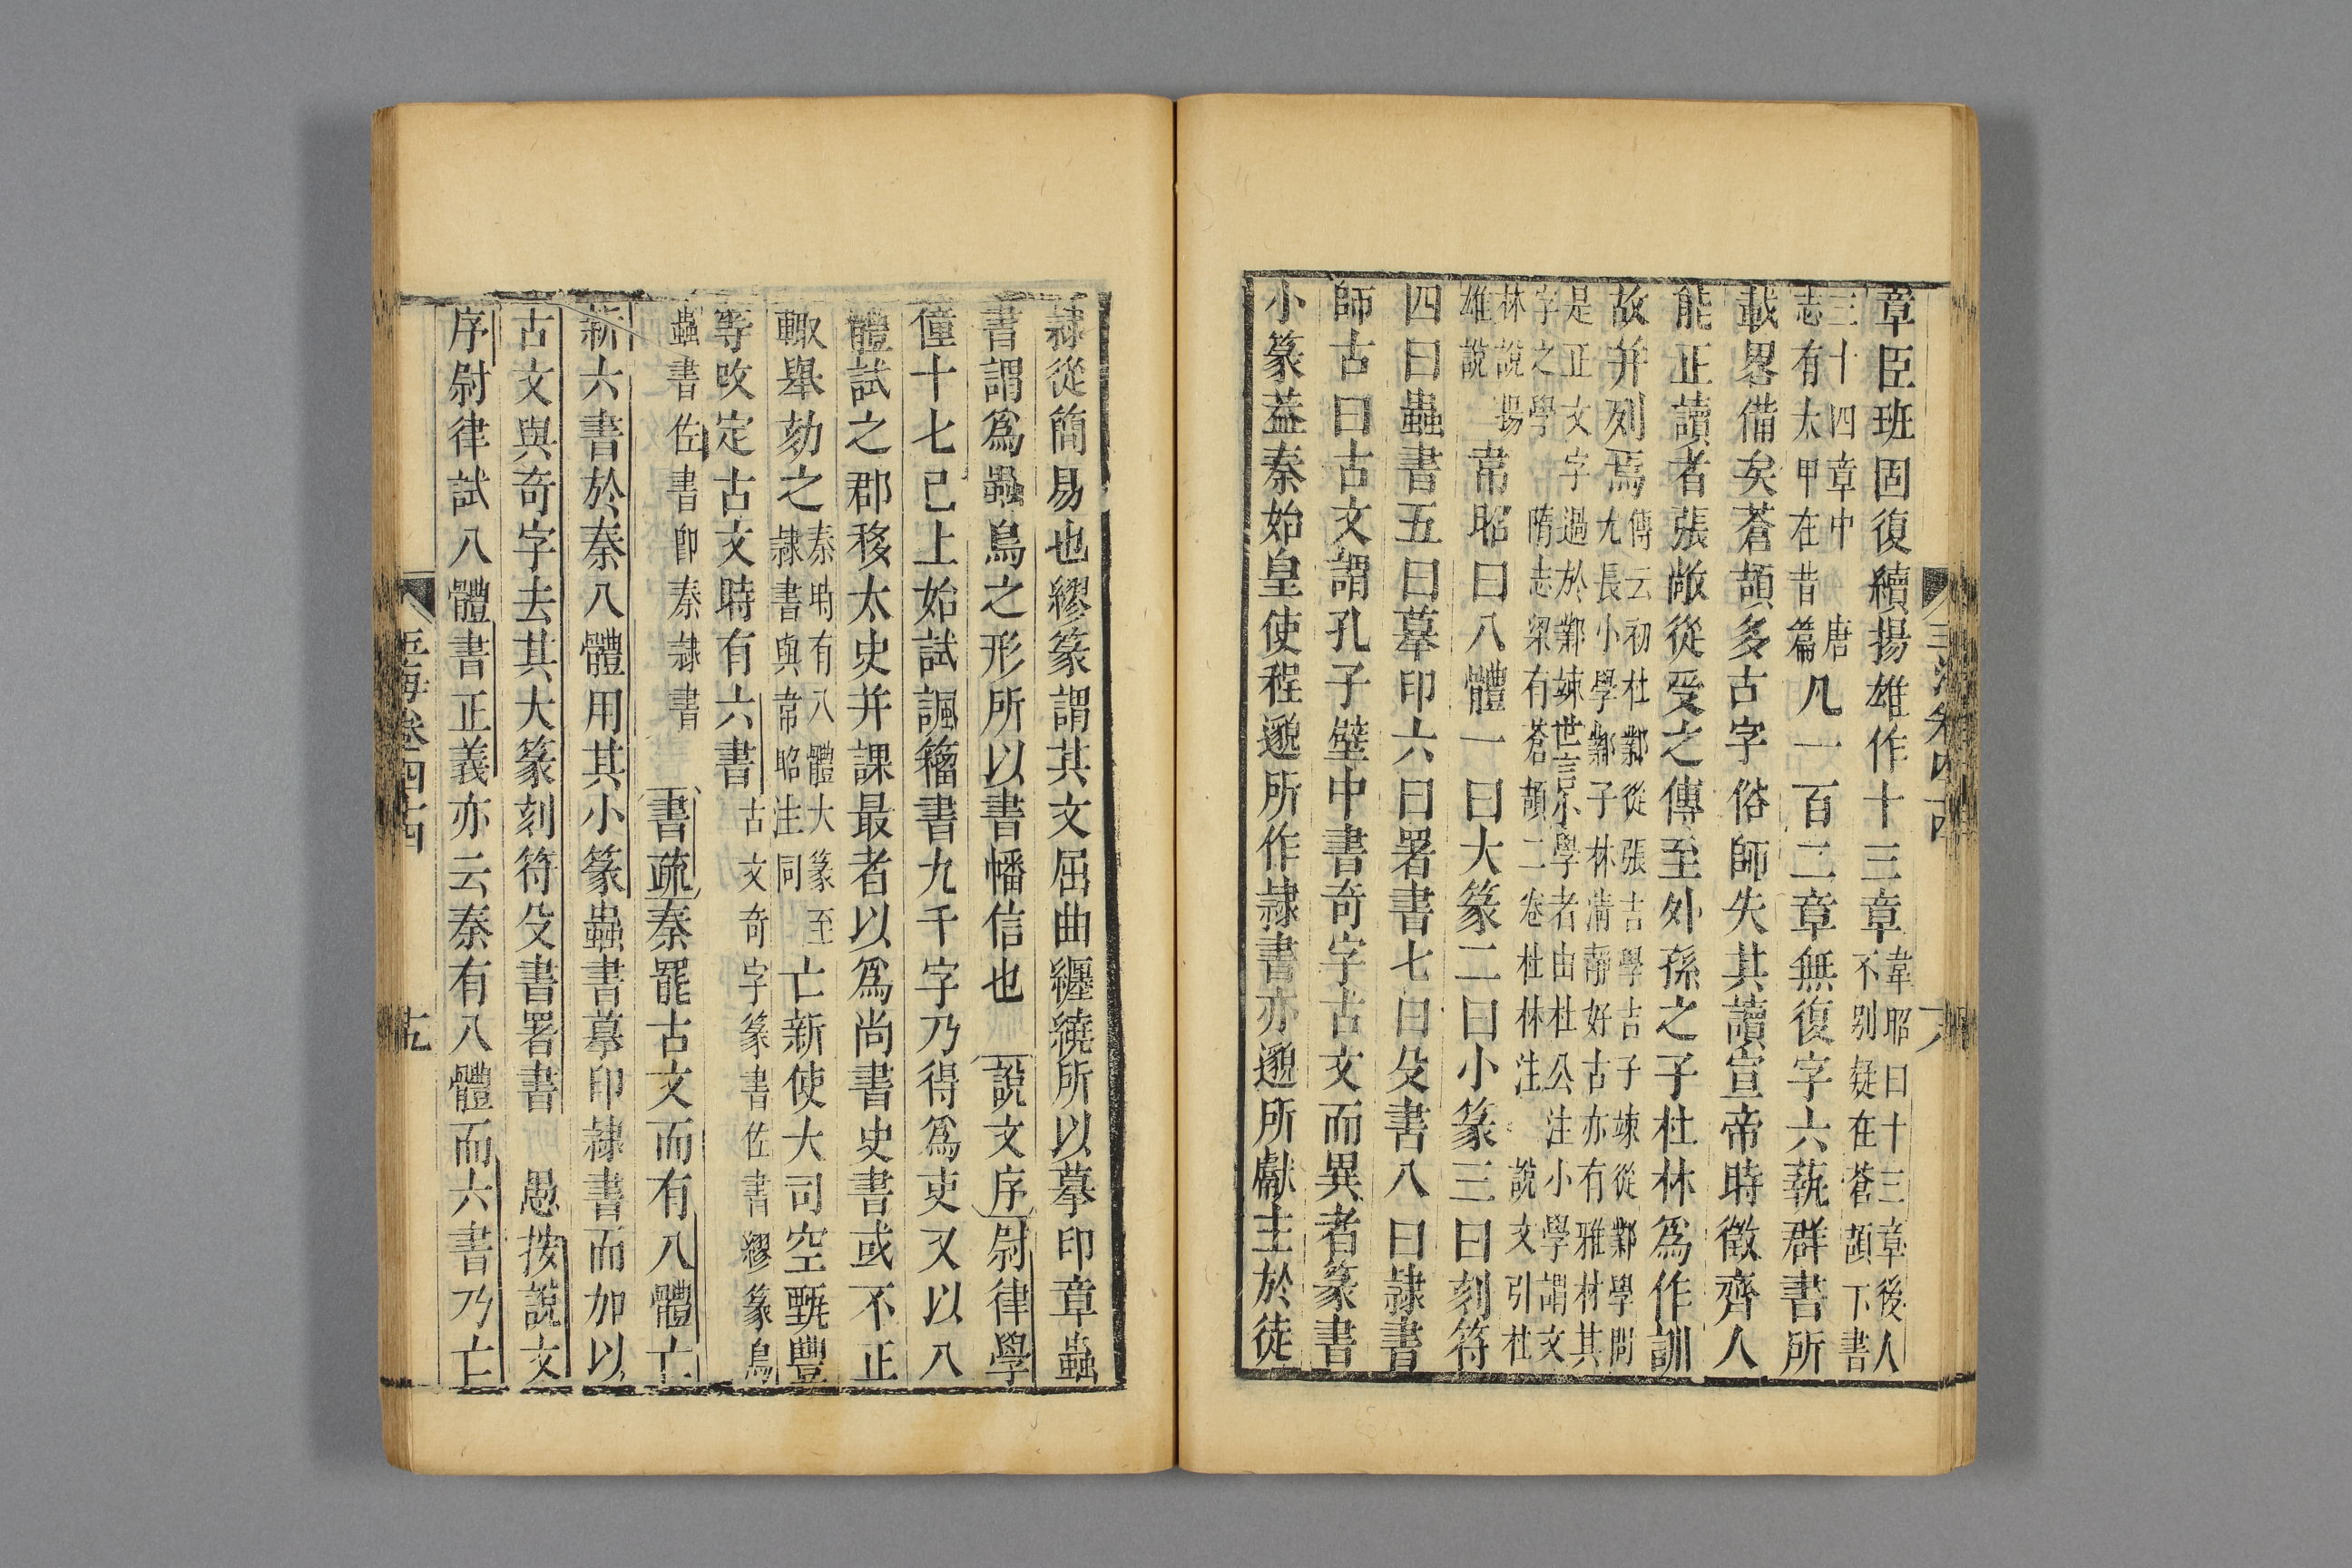 章臣班固復續揚雄作十三章韋昭曰十三章後人不别疑在蒼頡下書
三十四章中志有太甲在昔篇唐凡一百二章無復字六蓺群書所
載畧備矣蒼頡多古字俗師失其讀宣帝時徵齊人
能正讀者張敞從受之傳至外孫之子杜林爲作訓
故并列焉傳云初杜鄴從張吉學吉子竦從鄴學問尤長小學鄴子林淸靜好古亦有雅材其
是正文字過於鄴竦世言小學者由杜公注小學謂文字之學隋志梁有蒼頡二卷杜林注說文引杜
林說揚雄說韋昭曰八體一曰大篆二曰小篆三曰刻符
四曰蟲書五曰摹印六曰署書七曰殳書八曰隷書
師古曰古文謂孔子壁中書奇字古文而異者篆書
小篆葢秦始皇使程邈所作隷書亦邈所獻主於徒
隷從簡易也繆篆謂其文屈曲纒繞所以摹印章蟲
書謂爲蟲鳥之形所以書幡信也 說文序尉律學
僮十七已上始試諷籒書九千字乃得爲吏又以八
體試之郡移太史并課最者以爲尚書史書或不正
輙舉劾之秦時有八體大篆至隷書與韋昭注同亡新使大司空甄豐
等改定古文時有六書古文奇字篆書佐書繆篆鳥
蟲書佐書即秦隷書 書疏秦罷古文而有八體亡
新六書於秦八體用其小篆蟲書摹印隷書而加以
古文與奇字去其大篆刻符殳書署書 愚按說文
序尉律試八體書正義亦云秦有八體而六書乃亡
玉海卷四十四